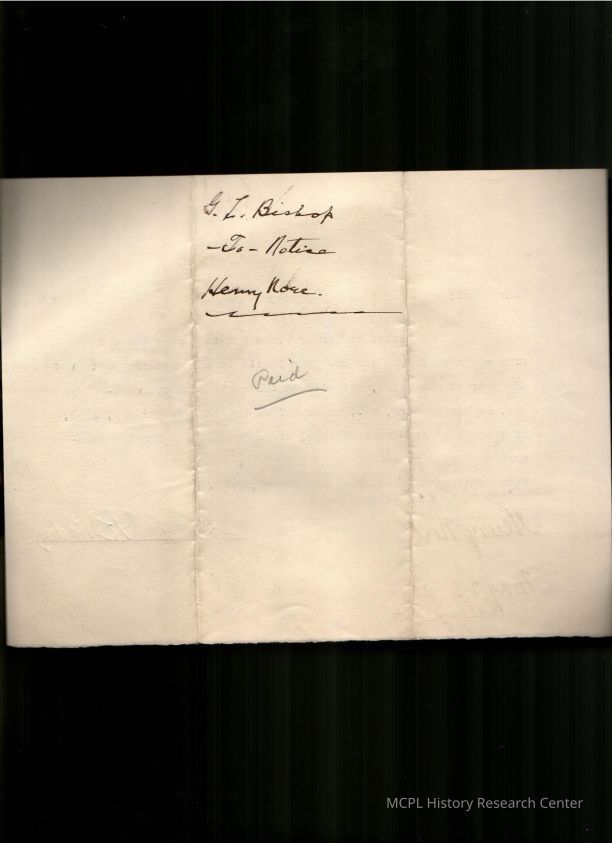 G. L. Bishop
-To- Notice
Henry Rose.
Paid
MCPL History Research Center